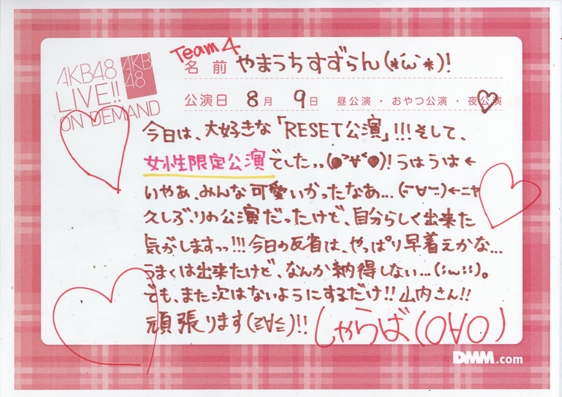 AKB48
LIVE!!
ON DEMAND
AKB
48
Team4
名前 やまうちすずらん(*´ω`*)!
公演日 8月 9日 昼公演・おやつ公演・夜公演
今日は、大好きな「RESET公演」!!!そして、
女性限定公演でした..(●°∀°●)!うはうは←
いやぁ、みんな可愛いかったなぁ...(ー∀ー)←ニヤ
久しぶりの公演だったけど、自分らしく出来た
気がしますっ!!!今日の反省は、やっぱり早着えかな...
うまくは出来たけど、なんか納得しない...(;ω;)。
でも、また次はないようにするだけ!!山内さん!!
頑張ります(≧∀≦)!! しゃらば(O∀O)
DMM.com